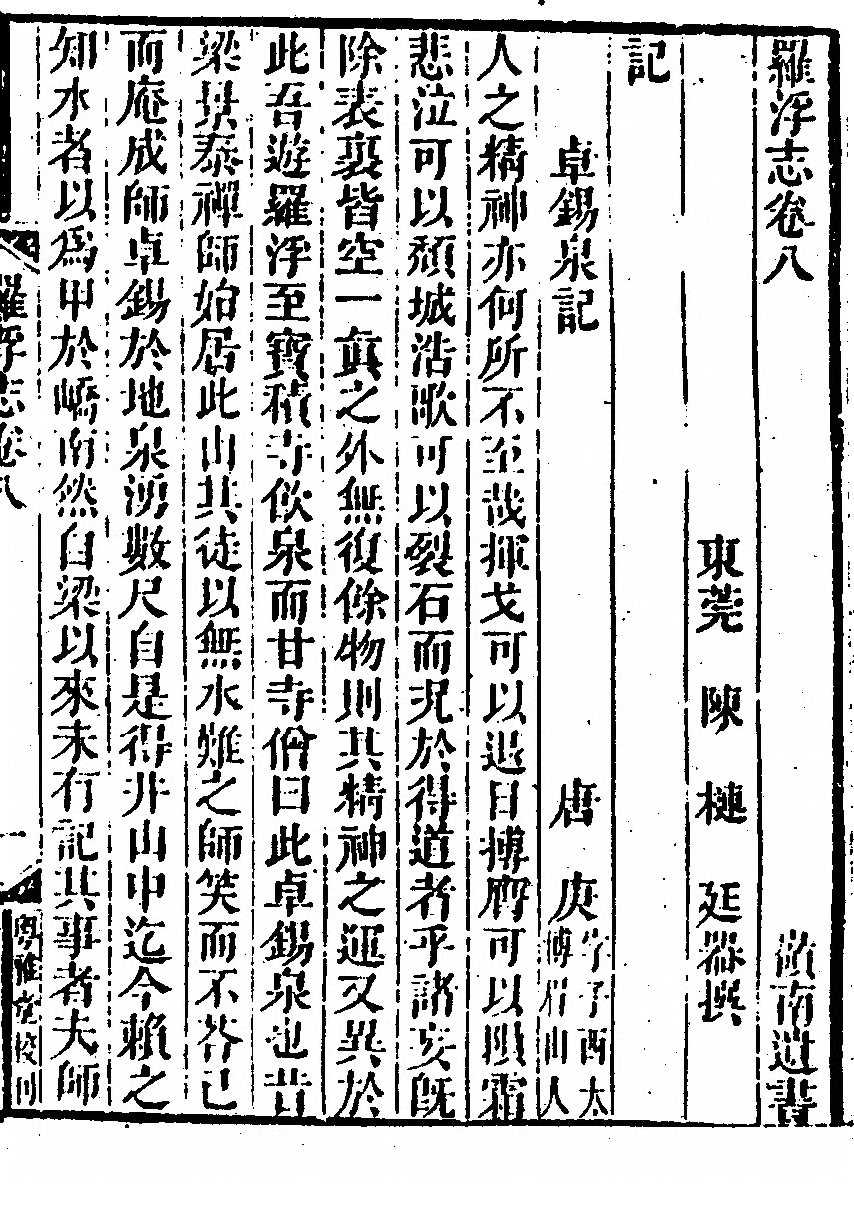 羅浮志卷八　嶺南遺書
東莞　陳　槤　廷器撰
記
卓錫泉記　唐庚字子西太博眉山人
人之精神亦何所不至哉揮戈可以退日搏膺可以隕霜
悲泣可以頹城浩歌可以裂石而況於得道者乎諸妄旣
除表裏皆空一眞之外無復餘物則其精神之運又異於
此吾遊羅浮至寶積寺飲泉而甘寺僧曰此卓錫泉也昔
梁景泰禪師始居此山其徒以無水難之師笑而不荅已
而庵成師卓錫於地泉湧數尺自是得井山中迄今賴之
知水者以爲甲於嶠南然自梁以來未有記其事者夫師
羅浮志卷八　一　粵雅堂校刊